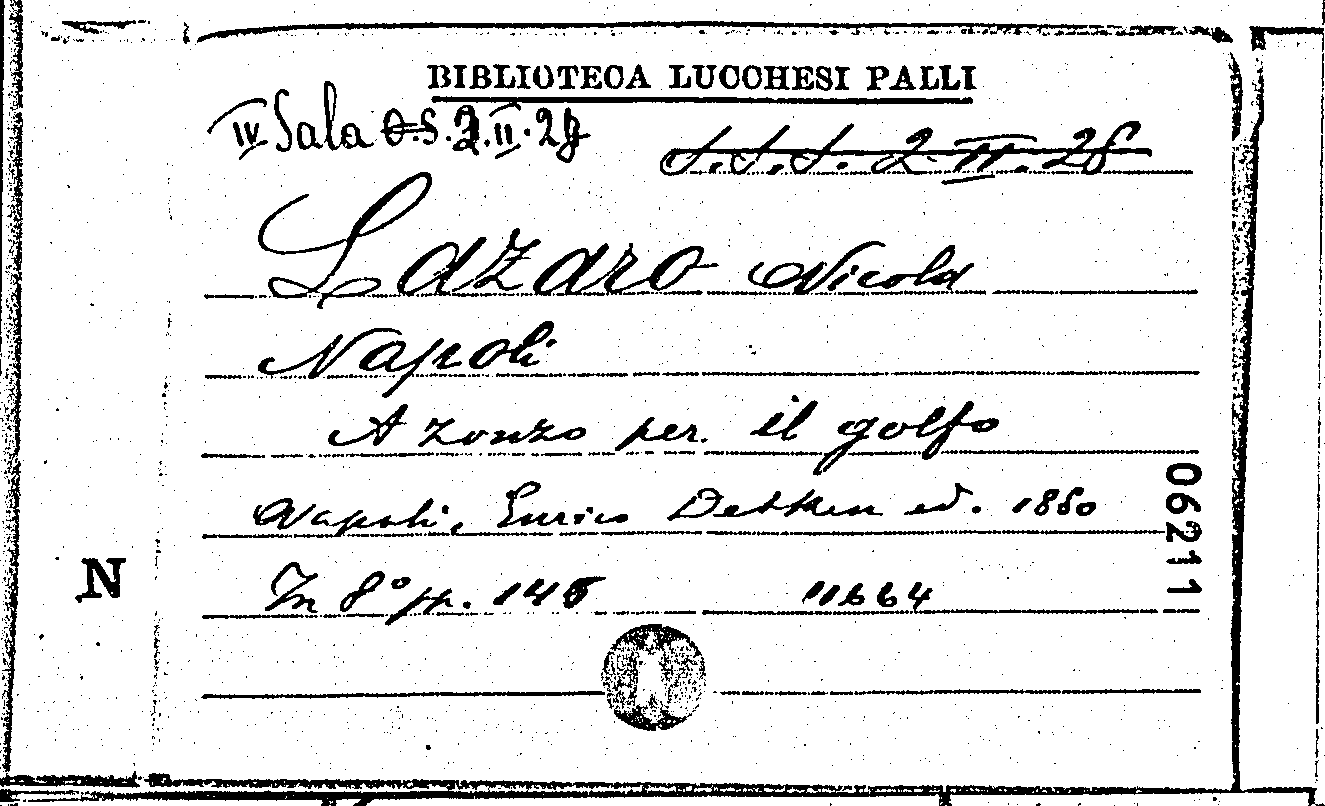 BIBLIOTECA LUCCHESI PALLI
IV Sala
S.S.S. 2 II. 28
Lazaro Nicola
Napoli
A zonzo per il golfo
Napoli, Enrico Detken ed. 1880
In 8° pp. 11664
06211
N